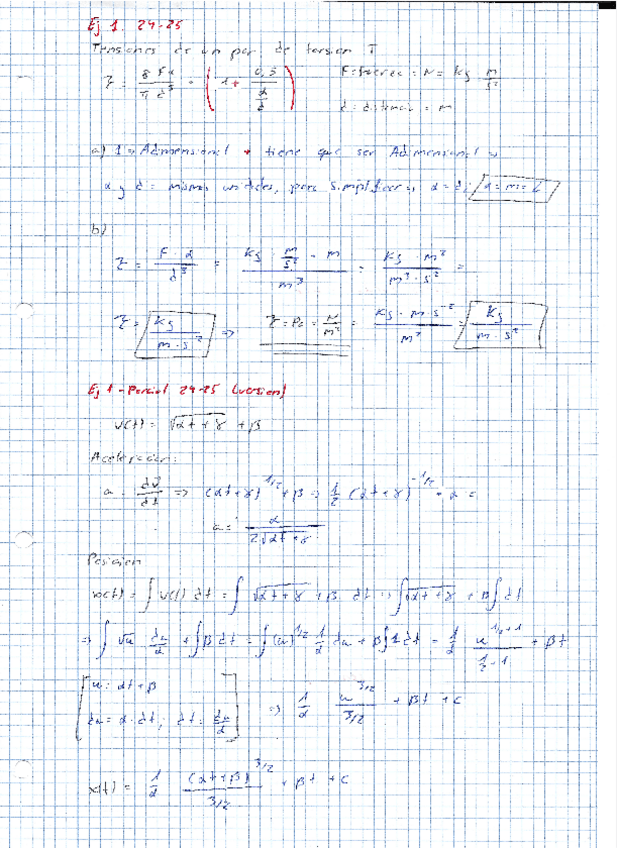 Ej 1. 24-25
Tensiones de un par de torsion T
τ = 8 Fα / π d³ · (1 + 0,5 / (α/d)) F = fuerza = N = Kg m/s²
d = distancia = m
a) 1 = Adimensional → tiene que ser Adimensional
α y d = mismas unidades, para simplificar α = d; α = m = L
b)
τ = F · α / d³ = Kg · m/s² · m / m³ = Kg · m² / m³ · s² =
τ = Kg / m · s² => τ = Pa = N/m² = Kg · m · s⁻² / m² = Kg / m · s²
Ej 1 - Parcial 24-25 (version)
v(t) = √αt + γ + β
Aceleracion:
a = dv/dt => (αt+γ)^1/2 + β => 1/2 (αt+γ)^-1/2 · α =
a = α / 2√αt+γ
Posicion
x(t) = ∫ v(t) dt = ∫ √αt+γ + β dt => ∫√αt+γ + β∫dt
=> ∫ √u du/α + ∫β dt = ∫(u)^1/2 1/α du + β∫1 dt = 1/α u^1/2+1 / 1/2+1 + βt
u = αt+β
du = α · dt; dt = du/α => 1/α u^3/2 / 3/2 + βt + c
x(t) = 1/α (αt+β)^3/2 / 3/2 + βt + c